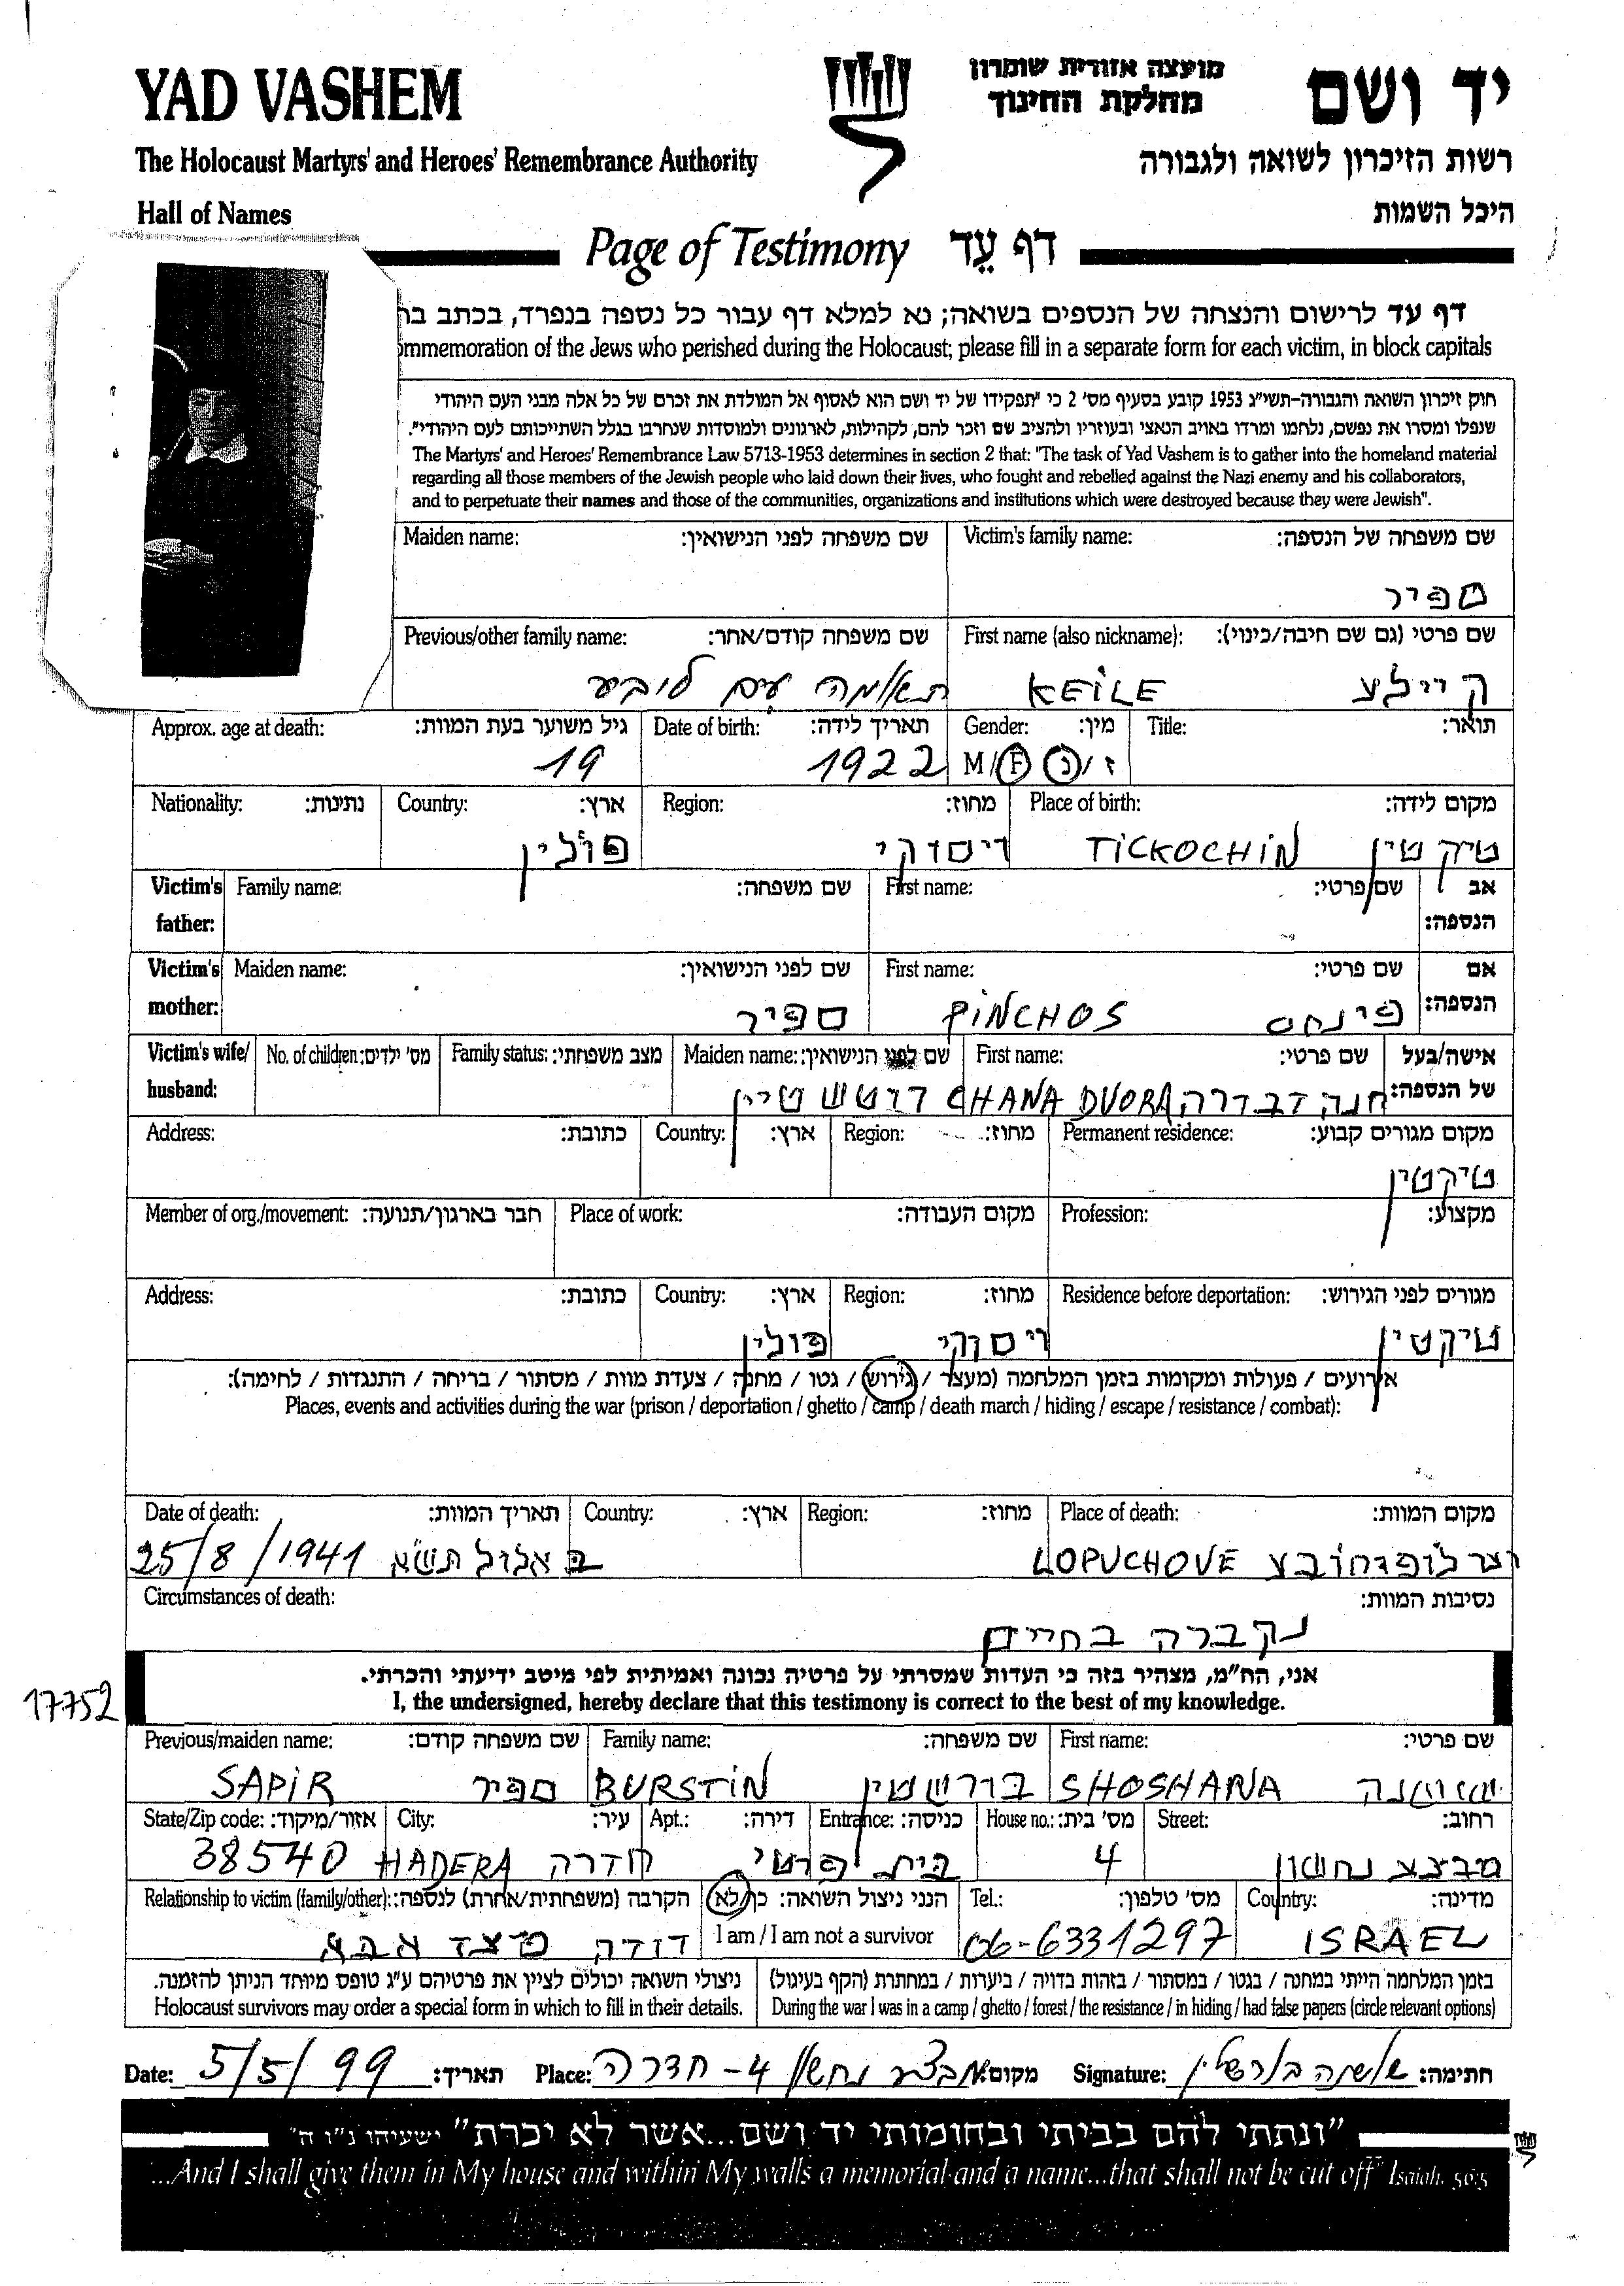 YAD VASHEM
מועצה אזורית שומרון
מחלקת החינוך
יד ושם
The Holocaust Martyrs' and Heroes' Remembrance Authority
רשות הזיכרון לשואה ולגבורה
Hall of Names
היכל השמות
Page of Testimony דף עֵד
דף עד לרישום והנצחה של הנספים בשואה; נא למלא דף עבור כל נספה בנפרד, בכתב
commemoration of the Jews who perished during the Holocaust; please fill in a separate form for each victim, in block capitals
חוק זיכרון השואה והגבורה-תשי"ג 1953 קובע בסעיף מס' 2 כי "תפקידו של יד ושם הוא לאסוף אל המולדת את זכרם של כל אלה מבני העם היהודי
שנפלו ומסרו את נפשם, נלחמו ומרדו באויב הנאצי ובעוזריו ולהציב שם וזכר להם, לקהילות, לארגונים ולמוסדות שנחרבו בגלל השתייכותם לעם היהודי".
The Martyrs' and Heroes' Remembrance Law 5713-1953 determines in section 2 that: "The task of Yad Vashem is to gather into the homeland material
regarding all those members of the Jewish people who laid down their lives, who fought and rebelled against the Nazi enemy and his collaborators,
and to perpetuate their names and those of the communities, organizations and institutions which were destroyed because they were Jewish".
Maiden name: שם משפחה לפני הנישואין: Victim's family name: שם משפחה של הנספה:
ספיר
Previous/other family name: שם משפחה קודם/אחר: First name (also nickname): שם פרטי (גם שם חיבה/כינוי):
תאומה עם טוביע KEILE קיילע
Approx. age at death: גיל משוער בעת המוות: Date of birth: תאריך לידה: Gender: מין: Title: תואר:
19 1922 M/F ז/נ
Nationality: נתינות: Country: ארץ: Region: מחוז: Place of birth: מקום לידה:
פולין ויסוקי TICKOCHIN טיקטין
Victim's father: Family name: שם משפחה: First name: שם פרטי: אב הנספה:
Victim's mother: Maiden name: שם לפני הנישואין: First name: שם פרטי: אם הנספה:
ספיר PINCHOS פינחס
Victim's wife/ husband: No. of children: מס' ילדים: Family status: מצב משפחתי: Maiden name: שם לפני הנישואין: First name: שם פרטי: אישה/בעל של הנספה:
CHANA DVORA חנה דבורה
Address: כתובת: Country: ארץ: Region: מחוז: Permanent residence: מקום מגורים קבוע:
טיקטין
Member of org./movement: חבר בארגון/תנועה: Place of work: מקום העבודה: Profession: מקצוע:
Address: כתובת: Country: ארץ: Region: מחוז: Residence before deportation: מגורים לפני הגירוש:
פולין ויסוקי טיקטין
אירועים / פעולות ומקומות בזמן המלחמה (מעצר / גירוש / גטו / מחנה / צעדת מוות / מסתור / בריחה / התנגדות / לחימה):
Places, events and activities during the war (prison / deportation / ghetto / camp / death march / hiding / escape / resistance / combat):
Date of death: תאריך המוות: Country: ארץ: Region: מחוז: Place of death: מקום המוות:
25/8/1941 ב אלול תש"א LOPUCHOVE יער לופוחובע
Circumstances of death: נסיבות המוות:
נקברה בחיים
אני, הח"מ, מצהיר בזה כי העדות שמסרתי על פרטיה נכונה ואמיתית לפי מיטב ידיעתי והכרתי.
17752
I, the undersigned, hereby declare that this testimony is correct to the best of my knowledge.
Previous/maiden name: שם משפחה קודם: Family name: שם משפחה: First name: שם פרטי:
SAPIR ספיר BURSTIN בורשטין SHOSHANA שושנה
State/Zip code: אזור/מיקוד: City: עיר: Apt.: דירה: Entrance: כניסה: House no.: מס' בית: Street: רחוב:
38540 HADERA חדרה בית פרטי 4 מבצע נחשון
Relationship to victim (family/other): הקרבה (משפחתית/אחרת) לנספה: הנני ניצול השואה: כן/לא Tel.: מס' טלפון: Country: מדינה:
דודה מצד אבא I am / I am not a survivor 06-6331297 ISRAEL
ניצולי השואה יכולים לציין את פרטיהם ע"ג טופס מיוחד הניתן להזמנה. בזמן המלחמה הייתי במחנה / בגטו / במסתור / בזהות בדויה / ביערות / במחתרת (הקף בעיגול)
Holocaust survivors may order a special form in which to fill in their details. During the war I was in a camp / ghetto / forest / the resistance / in hiding / had false papers (circle relevant options)
Date: 5/5/99 תאריך: Place: מבצע נחשון 4 - חדרה מקום: Signature: שושנה בורשטין חתימה:
"ונתתי להם בביתי ובחומותי יד ושם...אשר לא יכרת" ישעיהו נ"ו ה'
...And I shall give them in My house and within My walls a memorial and a name...that shall not be cut off" Isaiah. 56:5